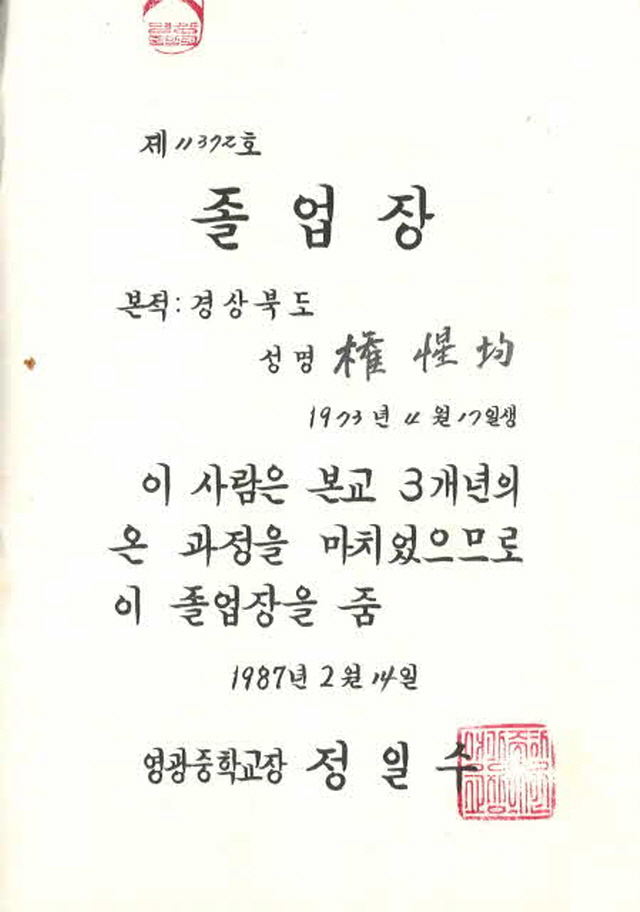 제 11372호
졸업장
본적: 경상북도
성명 權 惺 均
1973년 11월 17일생
이 사람은 본교 3개년의
온 과정을 마치었으므로
이 졸업장을 줌
1987년 2월 14일
영광중학교장 정 일 수